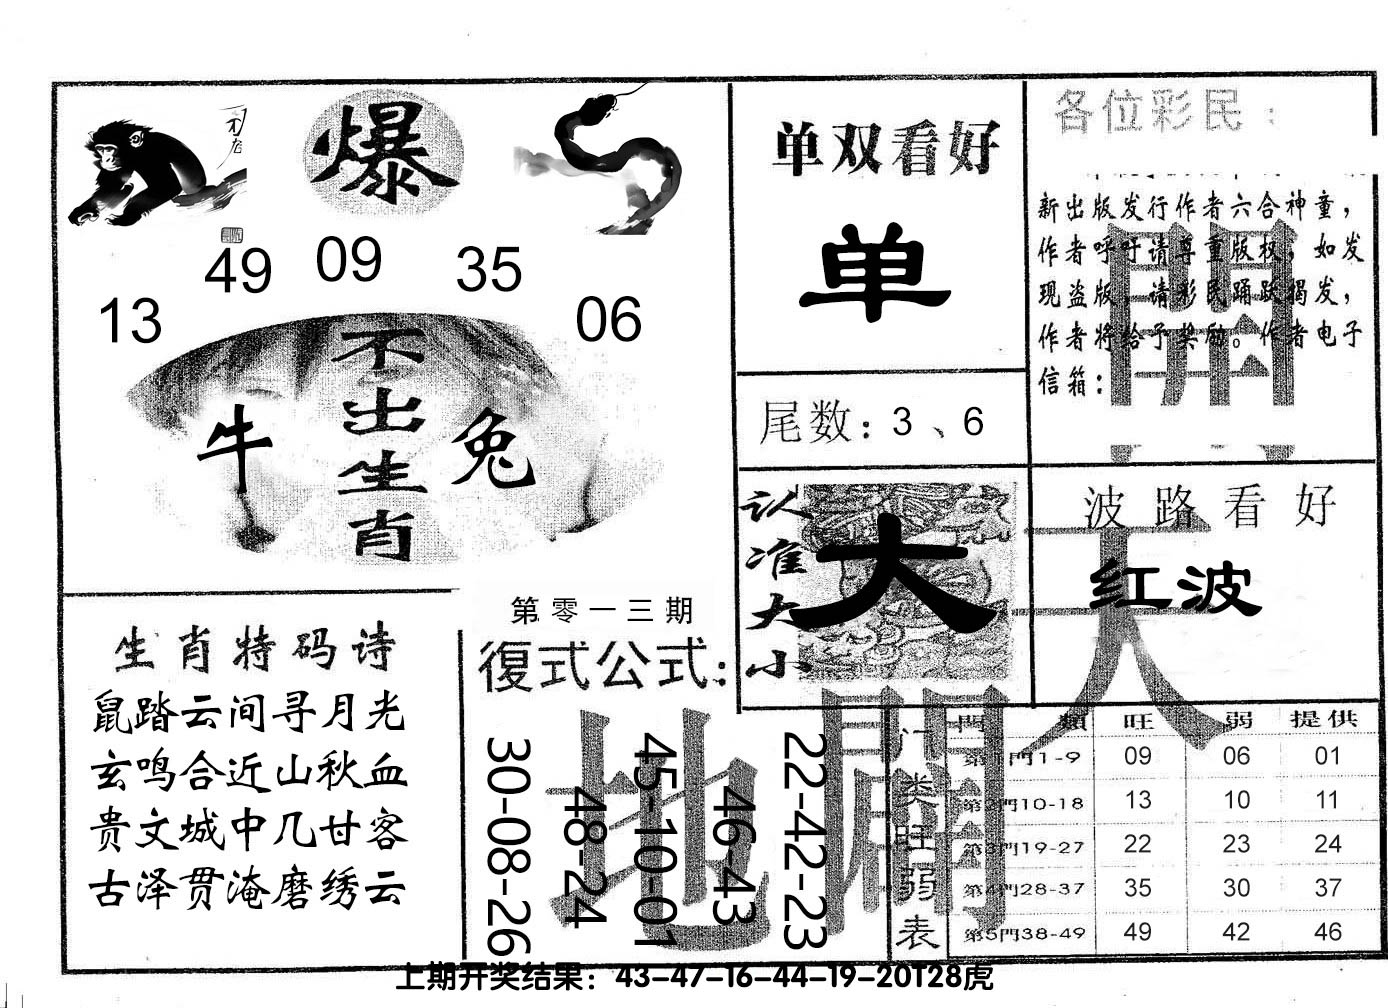 爆
49 09 35
13 06
不出生肖
牛 兔
单双看好
单
尾数：3、6
各位彩民：
新出版发行作者六合神童，
作者呼吁请尊重版权，如发
现盗版，请彩民踊跃揭发，
作者将给予奖励。作者电子
信箱：
認准大小
大
波路看好
红波
天
地
開
生肖特码诗
鼠踏云间寻月光
玄鸣合近山秋血
贵文城中几甘客
古泽贯淹磨绣云
第零一三期
復式公式：
30-08-26
48-24
45-10-01
46-43
22-42-23
门类旺弱表
門類 旺 弱 提供
第1門1-9 09 06 01
第2門10-18 13 10 11
第3門19-27 22 23 24
第4門28-37 35 30 37
第5門38-49 49 42 46
上期开奖结果：43-47-16-44-19-20T28虎